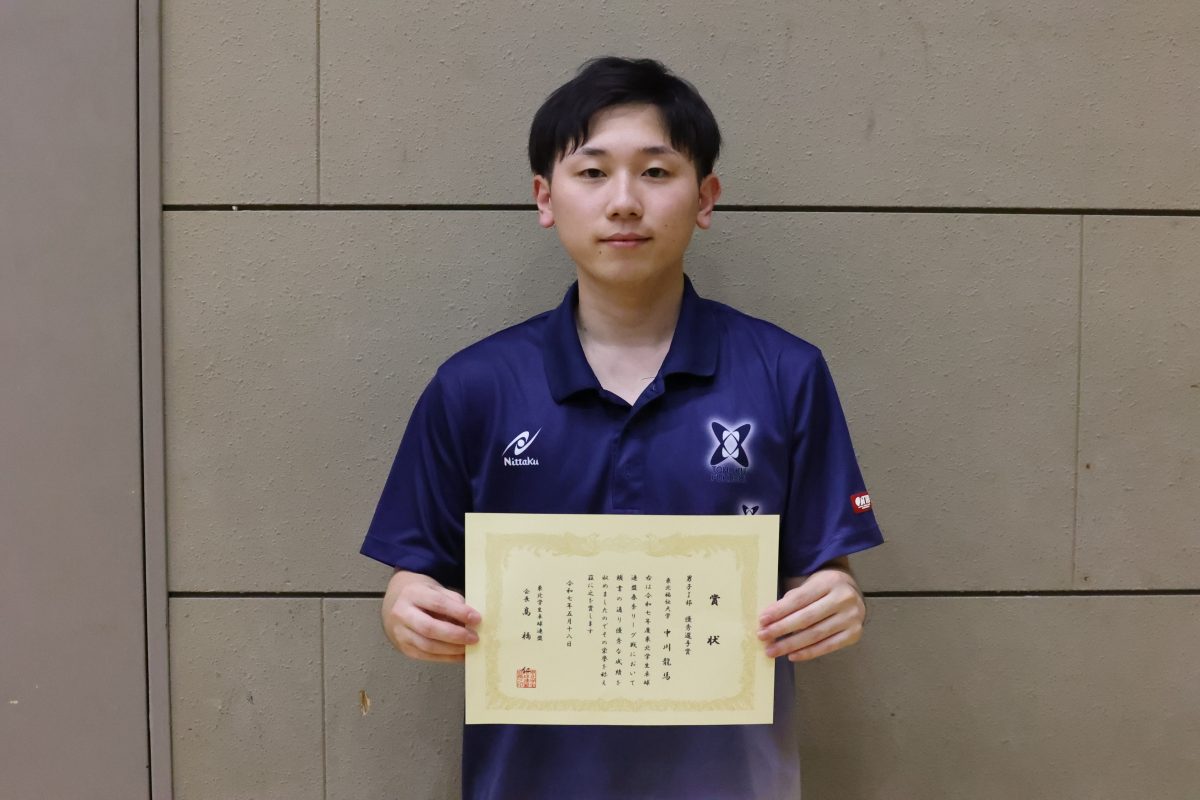 Nittaku
TOHOKU
FUKUSHI
賞状
男子1部 優秀選手賞
東北福祉大学 中川龍馬
右は令和七年度東北学生卓球
連盟春季リーグ戦において
頭書の通り優秀な成績を
収めましたのでその栄誉を称え
茲に之を賞します
令和七年五月十八日
東北学生卓球連盟
会長 高橋 仁